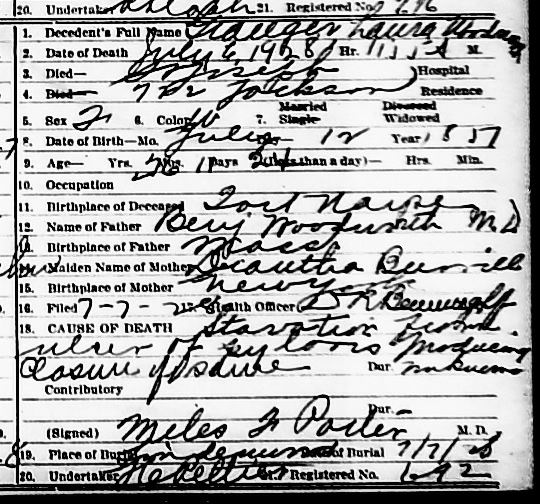 20. Undertaker 21. Registered No.
1. Decedent's Full Name Laura Woodworth
2. Date of Death July 6, 1928 Hr. M.
3. Died— St Joseph Hospital
4. Died— 722 Jackson Residence
5. Sex F 6. Color W 7. Married Single Divorced Widowed
8. Date of Birth—Mo. July 12 Year 1857
9. Age— Yrs. 70 Mos. 11 Days 24 (Less than a day)— Hrs. Min.
10. Occupation
11. Birthplace of Deceased Fort Wayne
12. Name of Father Benj Woodworth M.D
13. Birthplace of Father Mass
14. Maiden Name of Mother
15. Birthplace of Mother New York
16. Filed 7-7-28 17. Health Officer
18. CAUSE OF DEATH Starvation from
ulcer of pyloris producing
closure of same Dur.
Contributory
Dur.
(Signed) Miles F Porter M. D.
19. Place of Burial Lindenwood Date of Burial 7/7/28
20. Undertaker 21. Registered No. 692